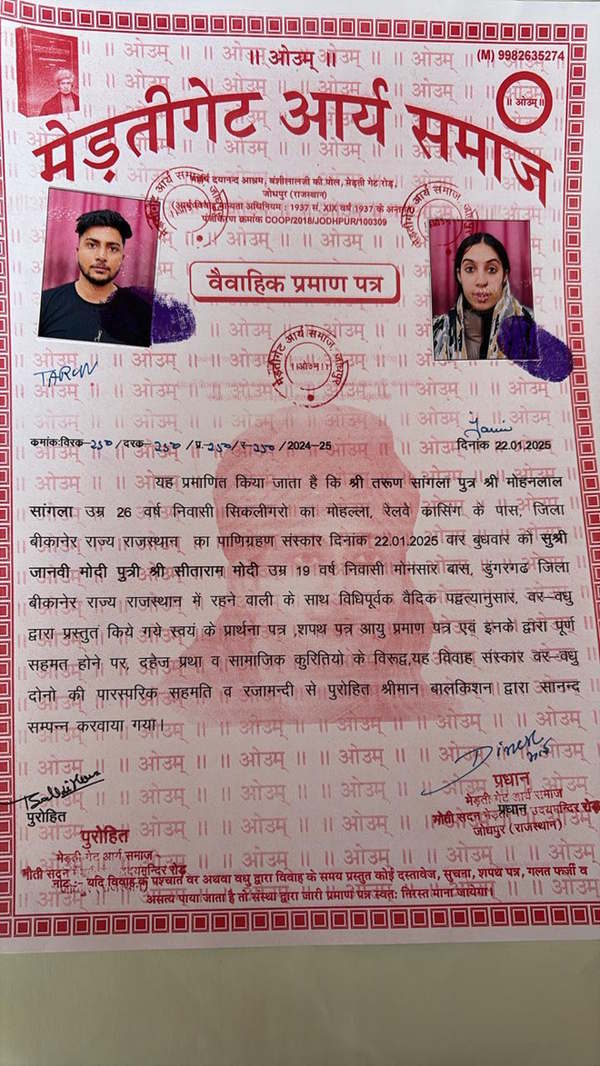 ।। ओउम् ।।
(M) 9982635274
मेड़तीगेट आर्य समाज
।। ओउम् ।।
दयानन्द आश्रम, बंशीलालजी की पोल, मेड़ती गेट रोड़,
जोधपुर (राजस्थान)
(आर्य विवाह मान्यता अधिनियम : 1937 सं. XIX वर्ष 1937 के
पंजीकरण क्रमांक COOP/2018/JODHPUR/100309
वैवाहिक प्रमाण पत्र
मेड़तीगेट आर्य समाज जोधपुर
।। ओउम् ।।
TARUN
क्रमांक:विरक-250/दरक-250/प्र-250/र-250/2024-25
दिनांक 22.01.2025
यह प्रमाणित किया जाता है कि श्री तरूण सांगला पुत्र श्री मोहनलाल
सांगला उम्र 26 वर्ष निवासी सिकलीगरो का मोहल्ला, रेलवे क्रासिंग के पास, जिला
बीकानेर राज्य राजस्थान का पाणिग्रहण संस्कार दिनांक 22.01.2025 वार बुधवार को सुश्री
जानवी मोदी पुत्री श्री सीताराम मोदी उम्र 19 वर्ष निवासी मोमासर बास, डुंगरगढ जिला
बीकानेर राज्य राजस्थान में रहने वाली के साथ विधिपूर्वक वैदिक पद्वत्यानुसार, वर-वधु
द्वारा प्रस्तुत किये गये स्वयं के प्रार्थना पत्र ,शपथ पत्र आयु प्रमाण पत्र एवं इनके द्वारा पूर्ण
सहमत होने पर, दहेज प्रथा व सामाजिक कुरितियो के विरूद्व,यह विवाह संस्कार वर-वधु
दोनो की पारस्परिक सहमति व रजामन्दी से पुरोहित श्रीमान बालकिशन द्वारा सानन्द
सम्पन्न करवाया गया।
पुरोहित
पुरोहित
मेड़ती गेट आर्य समाज
मोती सदन
प्रधान
मेड़ती गेट आर्य समाज
प्रधान
मोती सदन उदयमन्दिर रोड़
जोधपुर (राजस्थान)
नोट :- यदि विवाह के पश्चात वर अथवा वधु द्वारा विवाह के समय प्रस्तुत कोई दस्तावेज, सुचना, शपथ पत्र, गलत फर्जी व
असत्य पाया जाता है तो संस्था द्वारा जारी प्रमाण पत्र स्वतः निरस्त माना जायेगा।